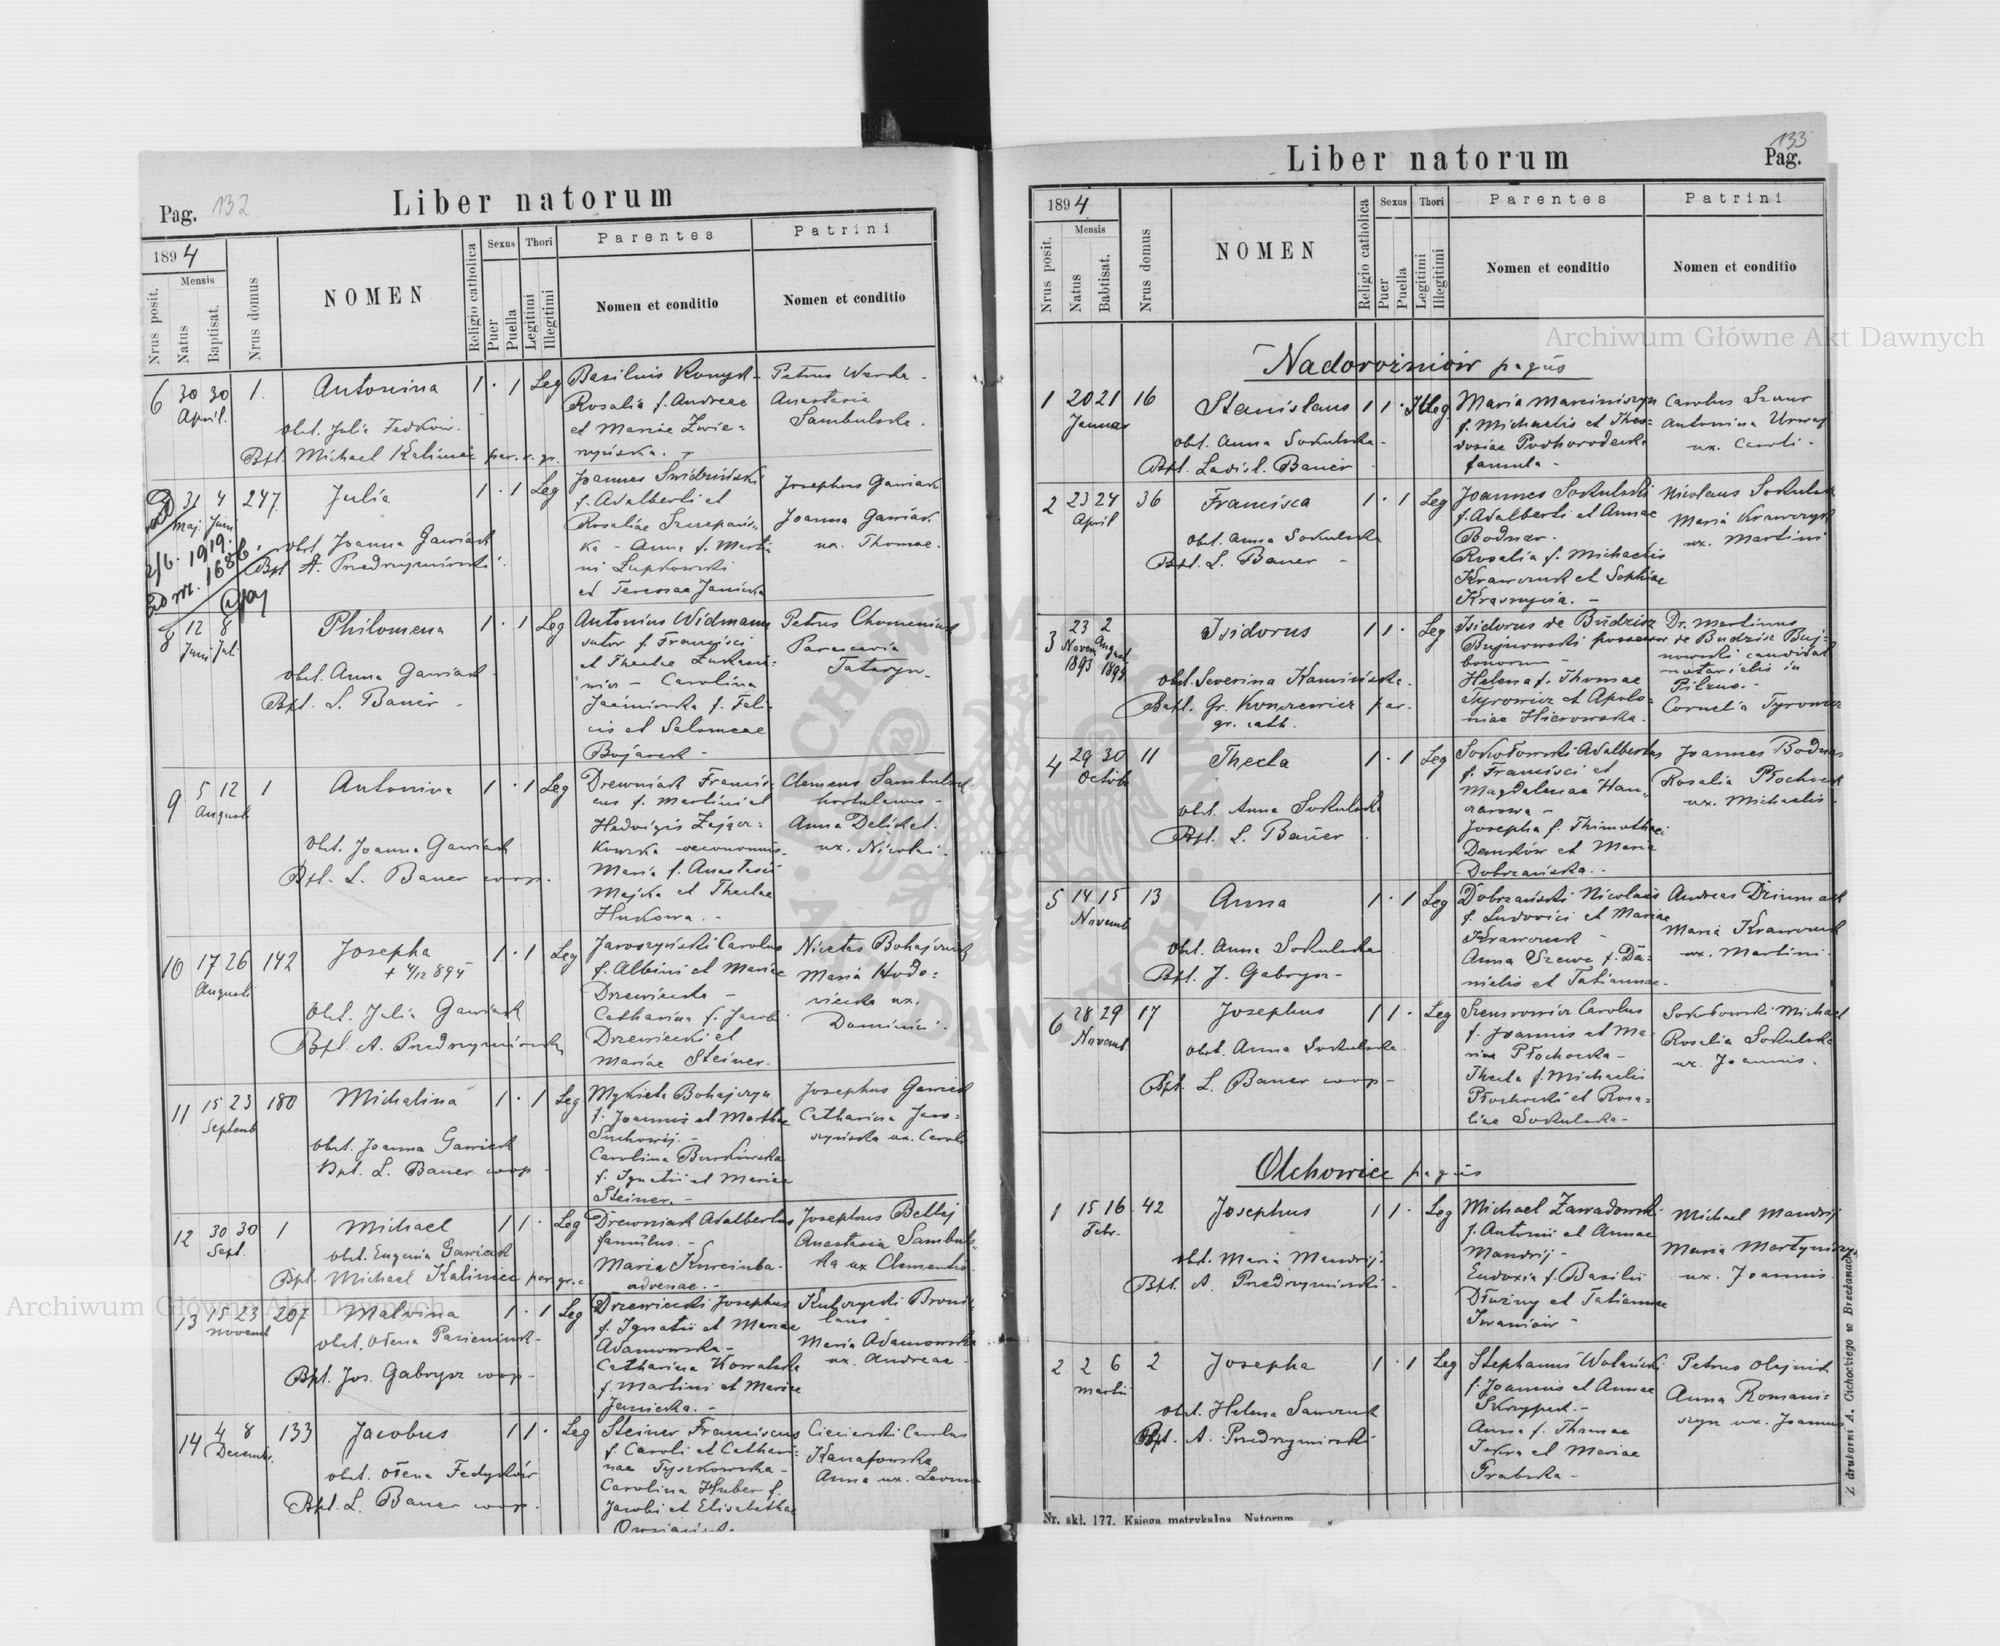 Pag. 132
Liber natorum
1894
Mensis
Nrus posit.
Natus
Baptisat.
Nrus domus
NOMEN
Religio catholica
Sexus
Puer
Puella
Thori
Legitimi
Illegitimi
Parentes
Nomen et conditio
Patrini
Nomen et conditio
6 30 30 1. Antonina 1 · 1 Leg
April.
obst. Julia Fedków.
Bpt. Michael Kaliniec par. r. gr.
Basilius
Rosalia f. Andreae
et Mariae
Petrus Warka
Anastasia
Sambulska.
31 4 247 Julia 1 · 1 Leg
Maj. Juni
obst. Joanna Gawiak
Bpt. A. Prudrzymirski
2/6. 1919.
ad nr. 168/b.
Joannes Swidziński
f. Adalberti et
Rosaliae Szczepańs-
ka - Anna f. Marti
ni Łupkowski
et Teressae Janicka
Josephus Gawiak
Joanna Gawiak
ux. Thomae.
8 12 8 Philomena 1 · 1 Leg
Juni Juli
obst. Anna Gawiak
Bpt. L. Bauer
Antonius Widmann
sutor f. Francisci
et Theclae
- Carolina
f. Feli-
cis et Salomeae
Bojarck -
Petrus
Parascevia
Tataryn.
9 5 12 1 Antonina 1 · 1 Leg
Augusti
obst. Joanna Gawiak
Bpt. L. Bauer coop.
Drewniak Francis-
cus f. Martini et
Hedvigis Zającz-
kowska oeconomus.
Maria f. Anastasii
Majka et Theclae
Hukowa. -
Clemens Sambulski
hortulanus -
Anna Delikat.
ux. Nicolai.
10 17 26 142 Josepha 1 · 1 Leg
Augusti
+ 4/12 894
obst. Julia Gawiak
Bpt. A. Prudrzymirski
Jaroszyński Carolus
f. Albini et Mariae
Drzewiecka -
Catharina f. Jacobi
Drzewiecki et
Mariae Steiner.
Nicetas Bohajczuk
Maria Hodo-
wiecka ux.
Dominici.
11 15 23 180 Michalina 1 · 1 Leg
Septemb
obst. Joanna Gawiak
Bpt. L. Bauer coop -
Mykieta Bohajczyn
f. Joannis et Marthae
Suchowij. -
Carolina Burkowska
f. Ignatii et Mariae
Steiner. -
Josephus Gawiak
Catharina Jaro-
szyńska ux. Caroli
12 30 30 1 Michael 1 1 · Leg
Sept.
obst. Eugenia Gawiak
Bpt. Michael Kaliniec par. gr. c.
Drewniak Adalbertus
famulus. -
Maria Kurcinba
advenae. -
Josephus Bellej
Anastasia Sambuls-
ka ux Clementis.
13 15 23 207 Malvina 1 · 1 Leg
Novemb
obst. Ołena
Bpt. Jos. Gabrysz coop -
Drzewiecki Josephus
f. Ignatii et Mariae
Adamowska -
Catharina Kowalska
f. Martini et Mariae
Janicka. -
Kulczycki Broni-
slaus -
Maria Adamowska
ux. Andreae -
14 4 8 133 Jacobus 1 1 · Leg
Decemb.
obst. Ołena Fedyków
Bpt. L. Bauer coop.
Steiner Franciscus
f. Caroli et Cathari-
nae Tyszkowska -
Carolina Huber f.
Jacobi et Elisabethae
Carolus
Kanafowska
Anna ux. Leonis
Pag. 133
Liber natorum
1894
Mensis
Nrus posit.
Natus
Babtisat.
Nrus domus
NOMEN
Religio catholica
Sexus
Puer
Puella
Thori
Legitimi
Illegitimi
Parentes
Nomen et conditio
Patrini
Nomen et conditio
Nadorożniów pagus
1 20 21 16 Stanislaus 1 1 · Illeg
Januar
obst. Anna Sokulska -
Bpt. Ladisl. Bauer
Maria Marciniszyn
f. Michaelis et Theo-
dosiae Podhorodecka
famula -
Carolus Szwur
Antonina
ux. Caroli -
2 23 24 36 Francisca 1 · 1 Leg
April
obst. Anna Sokulska
Bpt. L. Bauer -
Joannes Sokulski
f. Adalberti et Annae
Bodnar.
Rosalia f. Michaelis
Krawczuk et Sophiae
Nicolaus Sokulski
Maria Krawczyk
ux. Martini
3 23 2 Isidorus 1 1 · Leg
Novem August
1893 1894
obst. Severina Kaminska.
Bapt. Gr. Konrewicz par.
gr. cath.
Isidorus de Budzisz
Bujnowski possessor
bonorum -
Helena f. Thomae
Tyrowicz et Apolo-
niae Hierowska.
Dr. Martinus
de Budzisz Buj-
nowski candidat
notarialis in
Pilzno. -
Cornelia Tyrowicz
4 29 30 11 Thecla 1 · 1 Leg
Octob
obst. Anna Sokulska
Bpt. L. Bauer
Sokołowski Adalbertus
f. Francisci et
Magdalenae
Josepha f. Thimothaei
Dankow et Maria
Dobrzańska. -
Joannes Bodnar
Rosalia Płochocka
ux. Michaelis -
5 14 15 13 Anna 1 · 1 Leg
Novemb
obst. Anna Sokulska
Bpt. J. Gabrysz -
Dobrzański Nicolaus
f. Ludovici et Mariae
Krawczuk -
Anna Szewc f. Da-
nielis et Tatiannae.
Andreas
Maria Krawczuk
ux. Martini.
6 28 29 17 Josephus 1 1 · Leg
Novemb
obst. Anna Sokulska.
Bpt. L. Bauer coop -
Carolus
f. Joannis et Ma-
riae Płochocka -
Thecla f. Michaelis
Płochocki et Rosa-
liae Sokulska -
Sokołowski Michael
Rosalia Sokulska
ux. Joannis.
Olchowiec pagus
1 15 16 42 Josephus 1 1 · Leg
Febr.
obst. Maria Mandrij.
Bpt. A. Prudrzymirski -
Michael Zawadowski
f. Antonii et Annae
Mandrij -
Eudoxia f. Basilii
Dłużny et Tatiannae
Iwaniów -
Michael Mandrij
Maria Martyniszyn
ux. Joannis.
2 2 6 2 Josepha 1 · 1 Leg
Martii
obst. Helena Sawczuk
Bpt. A. Prudrzymirski
Stephanus Wolański
f. Joannis et Annae
Skrypek. -
Anna f. Thomae
et Mariae
Grabska -
Petrus Olejnik
Anna Romani-
szyn ux. Joannis
Nr. skł. 177. Księga metrykalna. Natorum
Z drukarni A. Cichockiego w Brzeżanach
Archiwum Główne Akt Dawnych
Archiwum Główne Akt Dawnych